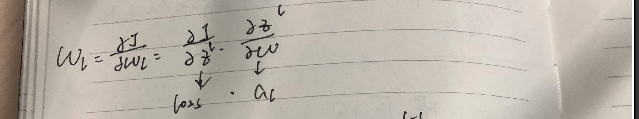 W_l = ∂J/∂W_l = ∂J/∂z^l · ∂z^l/∂w
↓ ↓
loss · a_l